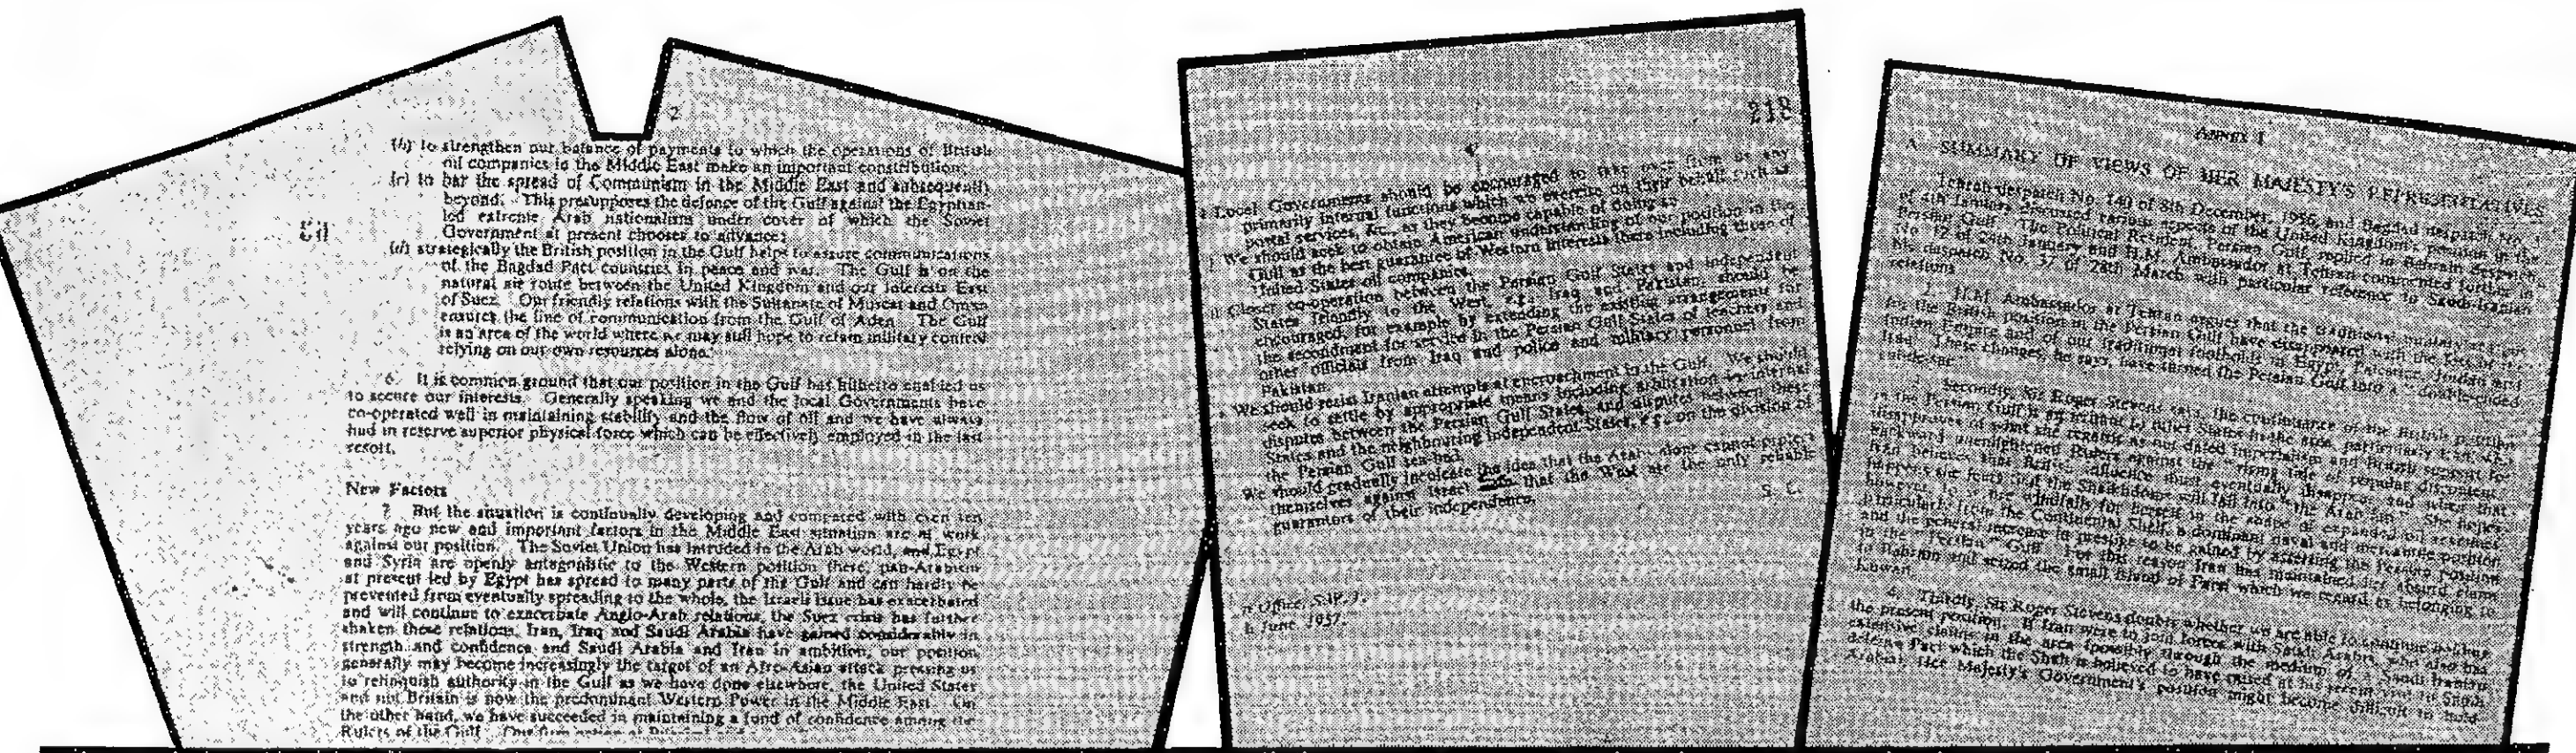 2
(b) to strengthen our balance of payments to which the operations of British
oil companies in the Middle East make an important constribution;
(c) to bar the spread of Communism in the Middle East and subsequently
beyond. This presupposes the defence of the Gulf against the Egyptian-
led extreme Arab nationalism under cover of which the Soviet
Government at present chooses to advance;
(d) strategically the British position in the Gulf helps to assure communications
of the Bagdad Pact countries in peace and war. The Gulf is on the
natural air route between the United Kingdom and our interests East
of Suez. Our friendly relations with the Sultanate of Muscat and Oman
ensures the line of communication from the Gulf of Aden. The Gulf
is an area of the world where we may still hope to retain military control
relying on our own resources alone.
6. It is common ground that our position in the Gulf has hitherto enabled us
to secure our interests. Generally speaking we and the local Governments have
co-operated well in maintaining stability and the flow of oil and we have always
had in reserve superior physical force which can be effectively employed in the last
resort.
New Factors
7. But the situation is continually developing and compared with even ten
years ago new and important factors in the Middle East situation are at work
against our position. The Soviet Union has intruded in the Arab world, and Egypt
and Syria are openly antagonistic to the Western position there, pan-Arabism
at present led by Egypt has spread to many parts of the Gulf and can hardly be
prevented from eventually spreading to the whole, the Israeli issue has exacerbated
and will continue to exacerbate Anglo-Arab relations, the Suez crisis has further
shaken these relations, Iran, Iraq and Saudi Arabia have gained considerably in
strength and confidence and Saudi Arabia and Iran in ambition, our position
generally may become increasingly the target of an Afro-Asian attack pressing us
to relinquish authority in the Gulf as we have done elsewhere, the United States
and not Britain is now the predominant Western Power in the Middle East. On
the other hand, we have succeeded in maintaining a fund of confidence among the
Rulers of the Gulf.
218
Local Governments should be encouraged to take over from us any
primarily internal functions which we exercise on their behalf such as
postal services, &c., as they become capable of doing so.
We should seek to obtain American understanding of our position in the
Gulf as the best guarantee of Western interests there including those of
United States oil companies.
Closer co-operation between the Persian Gulf States and independent
States friendly to the West, e.g., Iraq and Pakistan, should be
encouraged, for example by extending the existing arrangements for
the secondment for service in the Persian Gulf States of teachers and
other officials from Iraq and police and military personnel from
Pakistan.
We should resist Iranian attempts at encroachment in the Gulf. We should
seek to settle by appropriate means including arbitration by internal
disputes between the Persian Gulf States, and disputes between these
States and the neighbouring independent States, e.g., on the division of
the Persian Gulf sea-bed.
We should gradually inculcate the idea that the Arabs alone cannot protect
themselves against Israel that the West are the only reliable
guarantors of their independence.
S. C.
n Office, S.W.1.
June, 1957.
ANNEX I
A SUMMARY OF VIEWS OF HER MAJESTY'S REPRESENTATIVES
Tehran despatch No. 140 of 8th December, 1956, and Bagdad despatch No. 3
of 4th January discussed various aspects of the United Kingdom's position in the
Persian Gulf. The Political Resident, Persian Gulf, replied in Bahrain despatch
No. 12 of 24th January and H.M. Ambassador at Tehran commented further in
his despatch No. 37 of 28th March with particular reference to Saudi-Iranian
relations.
2. H.M. Ambassador at Tehran argues that the traditional military reasons
for the British position in the Persian Gulf have disappeared with the loss of the
Indian Empire and of our traditional footholds in Egypt, Palestine, Jordan and
Iraq. These changes, he says, have turned the Persian Gulf into a "double-ended
Secondly, Sir Roger Stevens says, the continuance of the British position
in the Persian Gulf is an irritant to other States in the area, particularly Iran who
disapproves of what she regards as out-dated imperialism and British support for
backward unenlightened Rulers against the "rising tide of popular discontent.
Iran believes that British influence must eventually disappear and when that
happens she fears that the Shaikhdoms will fall into "the Arab She hopes,
however, for windfalls for herself in the shape of expanded oil
particularly from the Continental Shelf, a dominant naval and mercantile position
and the general increase in prestige to be gained by asserting the Persian position
in the "Persian" Gulf. For this reason Iran has maintained her absurd claim
to Bahrain and seized the small island of Farsi which we regard as belonging to
Kuwait.
4. Thirdly, Sir Roger Stevens doubts whether we are able to continue holding
the present position. If Iran were to join forces with Saudi Arabia, who also has
extensive claims in the area (possibly through the medium of a Saudi-Iranian
defence Pact which the Shah is believed to have raised at his recent visit to Saudi
Arabia), Her Majesty's Government's position might become difficult to hold.